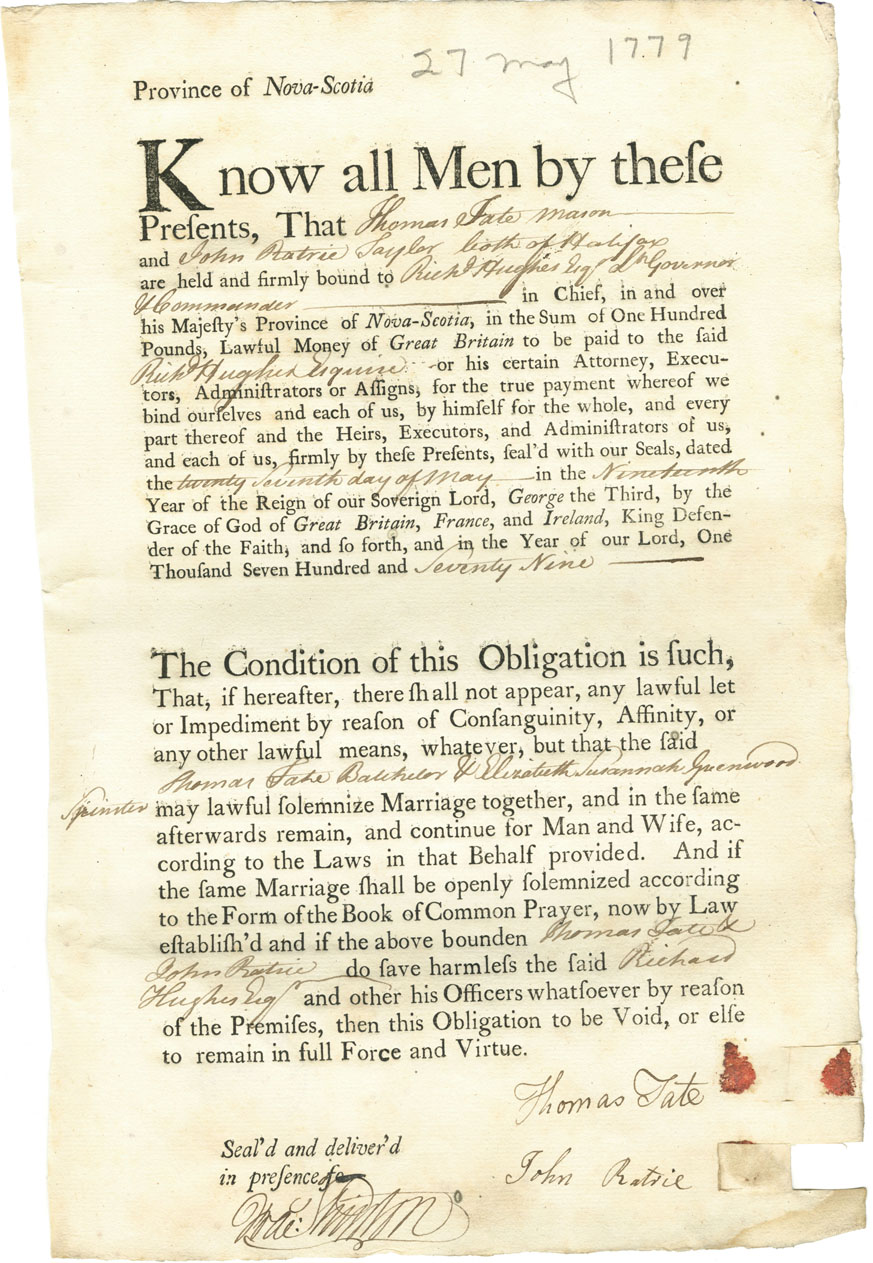 27 May 1779
Province of Nova-Scotia
Know all Men by theſe
Preſents, That Thomas Tate Mason
and John Ratrie Taylor both of Halifax
are held and firmly bound to Richd Hughes Esqr Lt Governor
& Commander in Chief, in and over
his Majeſty's Province of Nova-Scotia, in the Sum of One Hundred
Pounds, Lawful Money of Great Britain to be paid to the ſaid
Richd Hughes Esquire or his certain Attorney, Execu-
tors, Adminiſtrators or Aſſigns, for the true payment whereof we
bind ourſelves and each of us, by himſelf for the whole, and every
part thereof and the Heirs, Executors, and Adminiſtrators of us,
and each of us, firmly by theſe Preſents, ſeal'd with our Seals, dated
the twenty Seventh day of May in the Nineteenth
Year of the Reign of our Soverign Lord, George the Third, by the
Grace of God of Great Britain, France, and Ireland, King Defen-
der of the Faith, and ſo forth, and in the Year of our Lord, One
Thouſand Seven Hundred and Seventy Nine
The Condition of this Obligation is ſuch,
That, if hereafter, there ſhall not appear, any lawful let
or Impediment by reaſon of Conſanguinity, Affinity, or
any other lawful means, whatever, but that the ſaid
Thomas Tate Batchelor & Elizabeth Susannah Greenwood
Spinster may lawful ſolemnize Marriage together, and in the ſame
afterwards remain, and continue for Man and Wife, ac-
cording to the Laws in that Behalf provided. And if
the ſame Marriage ſhall be openly ſolemnized according
to the Form of the Book of Common Prayer, now by Law
eſtabliſh'd and if the above bounden Thomas Tate &
John Ratrie do ſave harmleſs the ſaid Richard
Hughes Esqr and other his Officers whatſoever by reaſon
of the Premiſes, then this Obligation to be Void, or elſe
to remain in full Force and Virtue.
Thomas Tate
Seal'd and deliver'd
in preſence of
John Ratrie